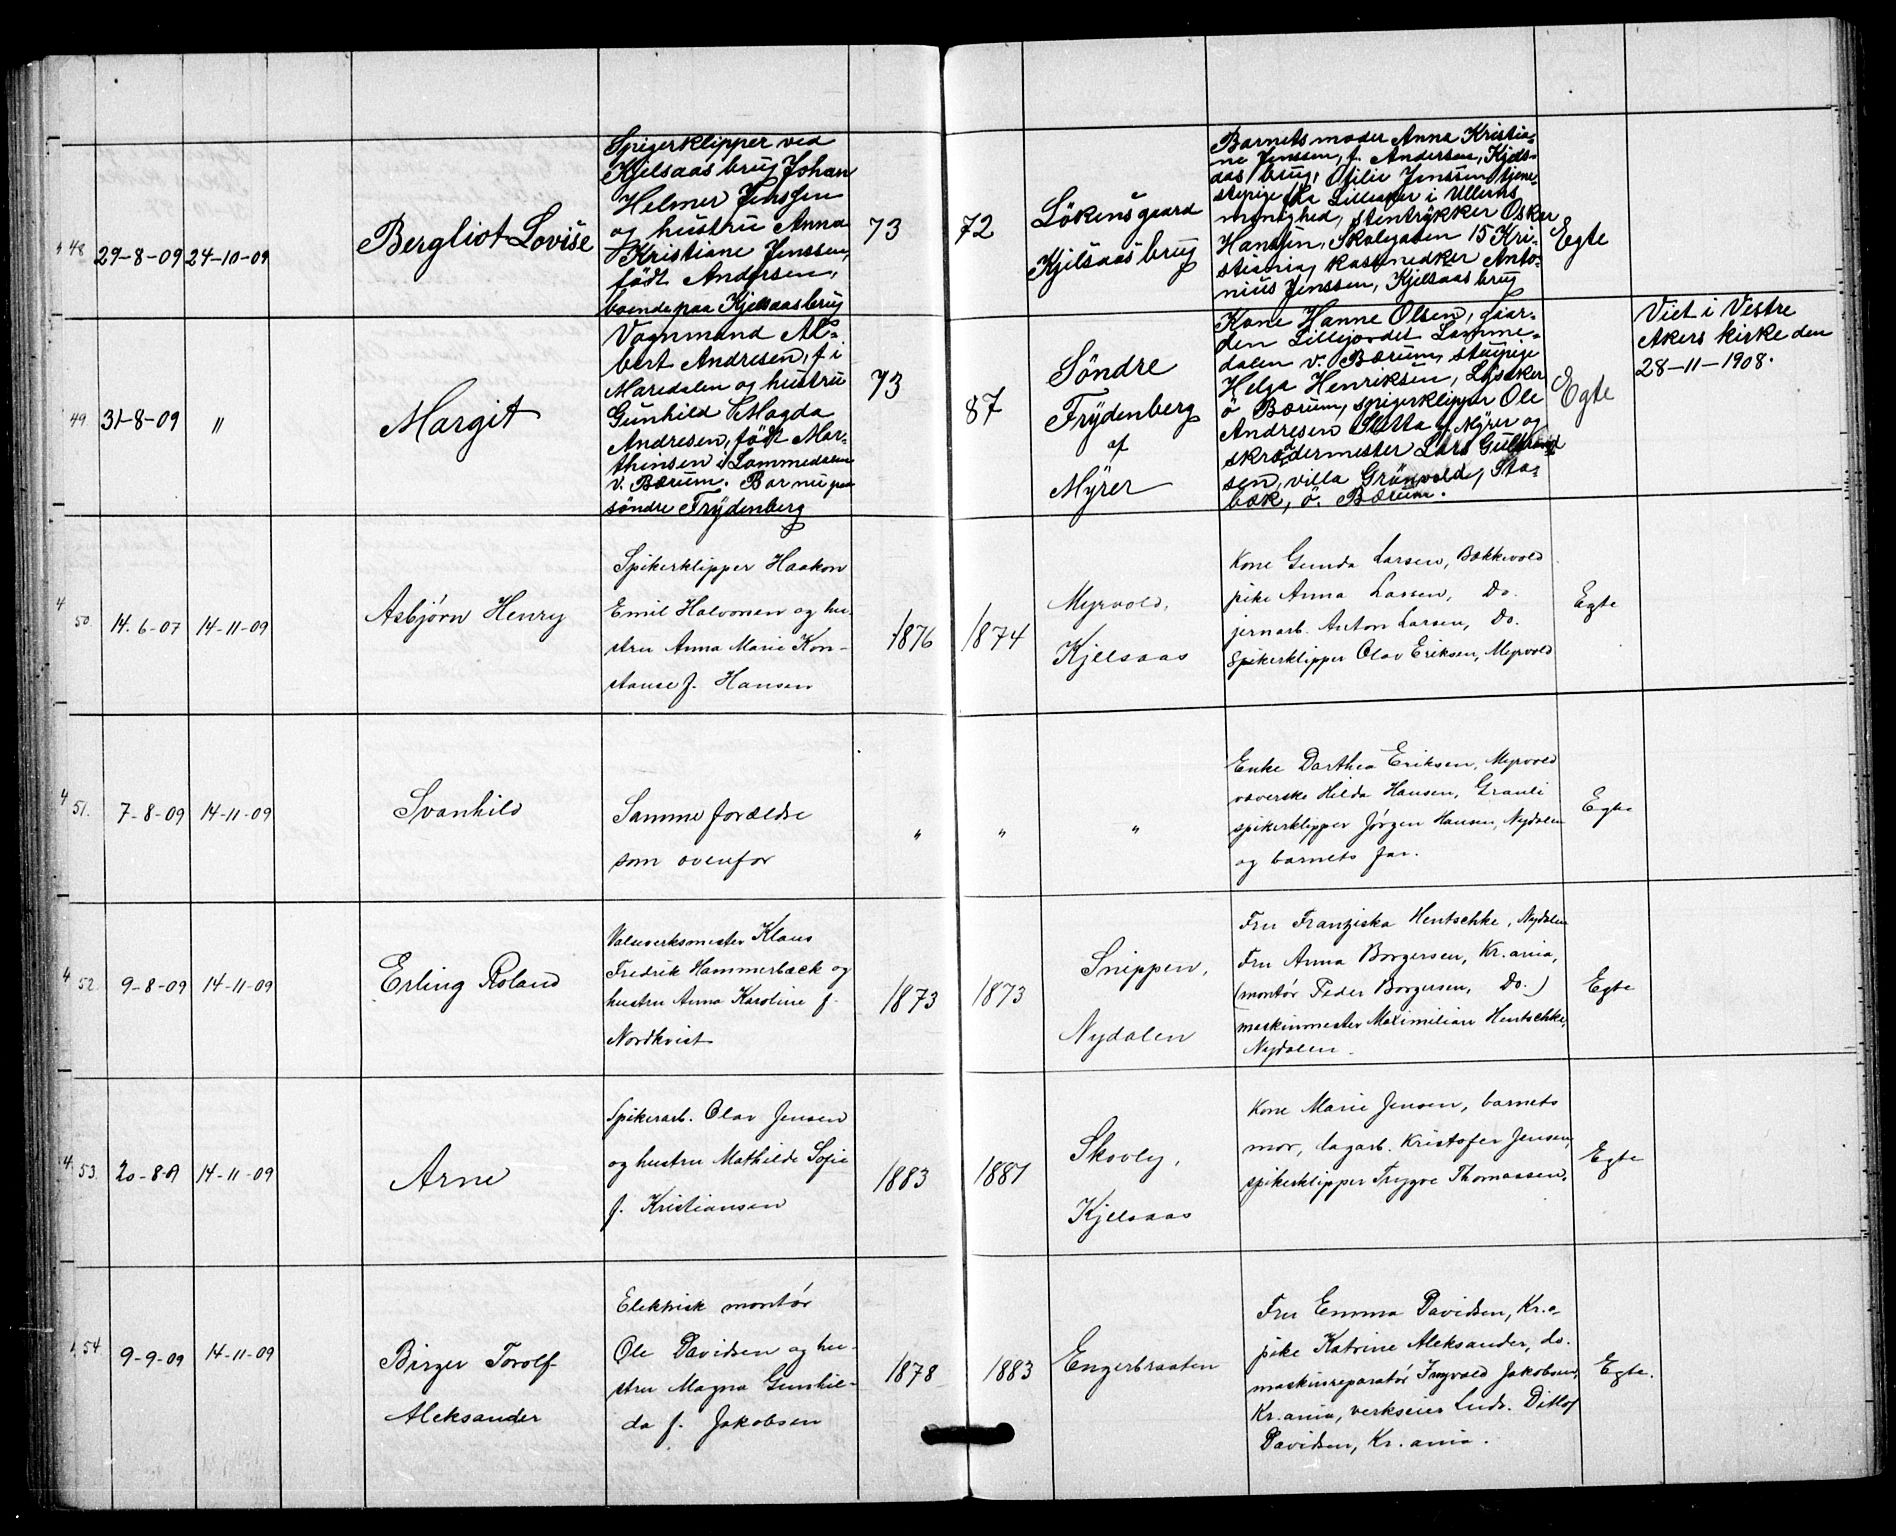 48
29-8-09
24-10-09
Bergliot Lovise
Spigerklipper ved
Kjelsaas brug Johan
Helmer Jenssen
og hustru Anna
Kristiane Jenssen,
født Andersen,
boende paa Kjelsaasbrug
73
72
Lökensgaard
Kjelsaasbrug
Barnets moder Anna Kristia-
ne Jenssen, f. Andersen, Kjels-
aas brug, Otilie Jenssen tjene-
stepige fra Lilleaker i Ullerns
menighed, stentrykker Oskar
Hansen, Skolegaden 15 Kri-
stiania, kassnedker Anto-
nius Jenssen, Kjelsaas brug
Egte
49
31-8-09
"
Margit
Vognmand Al-
bert Andresen, f. i
Maredalen og hustru
Gunhild Magda
Andresen, født Mar-
thinsen i Lommedalen
v. Bærum. Bor nu paa
söndre Frydenberg
73
87
Söndre
Frydenberg
af
Myrer
Kone Hanne Olsen, gaar-
den Lillejordet Lomme-
dalen v. Bærum, stuepige
Helga Henriksen, Lysaker
ö. Bærum, spigerklipper Ole
Andresen Sletta af Myrer og
skrædermester Lars Gulbrand
sen, villa Grünvold, Sta-
bæk, ö. Bærum.
Egte
Viet i Vestre
Akers kirke den
28-11-1908.
4
50.
14.6-07
14-11-09
Asbjørn Henry
Spikerklipper Haakon
Emil Halvorsen og hu-
stru Anna Marie Kon-
stanse f. Hansen
1876
1874
Myrvold,
Kjelsaas
Kone Gunda Larsen, Bækkevold
pike Anna Larsen, Do.
jernarb. Anton Larsen, Do.
Spikerklipper Olav Eriksen, Myrvold
Egte
4
51.
7-8-09
14-11-09
Svanhild
Samme forældre
som ovenfor
"
"
"
Enke Dorthea Eriksen, Myrvold
væverske Hilda Hansen, Granli
spikerklipper Jørgen Hansen, Nydalen
og barnets far.
Egte
4
52.
9-8-09
14-11-09
Erling Roland
Valseverksmester Klaus
Fredrik Hammerbæck og
hustru Anna Karoline f.
Nordkvist
1873
1873
Snippen,
Nydalen
Fru Franziska Hentschke, Nydalen
Fru Anna Borgersen, Kr.ania,
(montør Peder Borgersen, Do.)
maskinmester Maximilian Hentschke,
Nydalen.
Egte
4
53.
20-8-09
14-11-09
Arne
Spikerarb. Olav Jensen
og hustru Mathilde Sofie
f. Kristiansen
1883
1887
Skovly,
Kjelsaas
Kone Marie Jensen, barnets
mor, dagarb. Kristofer Jensen,
spikerklipper Trygve Thomassen.
Egte
54
9-9-09
14-11-09
Birger Torolf
Aleksander
Elektrisk montør
Ole Davidsen og hu-
stru Magna Gunhil-
da f. Jakobsen
1878
1883
Engerbraaten
Fru Emma Davidsen, Kr.a
pike Katrine Aleksander, do.
maskinreparatør Ingvald Jakobsen,
Kr.ania, verkseier Ludv. Ditlof
Davidsen, Kr.ania.
Egte.